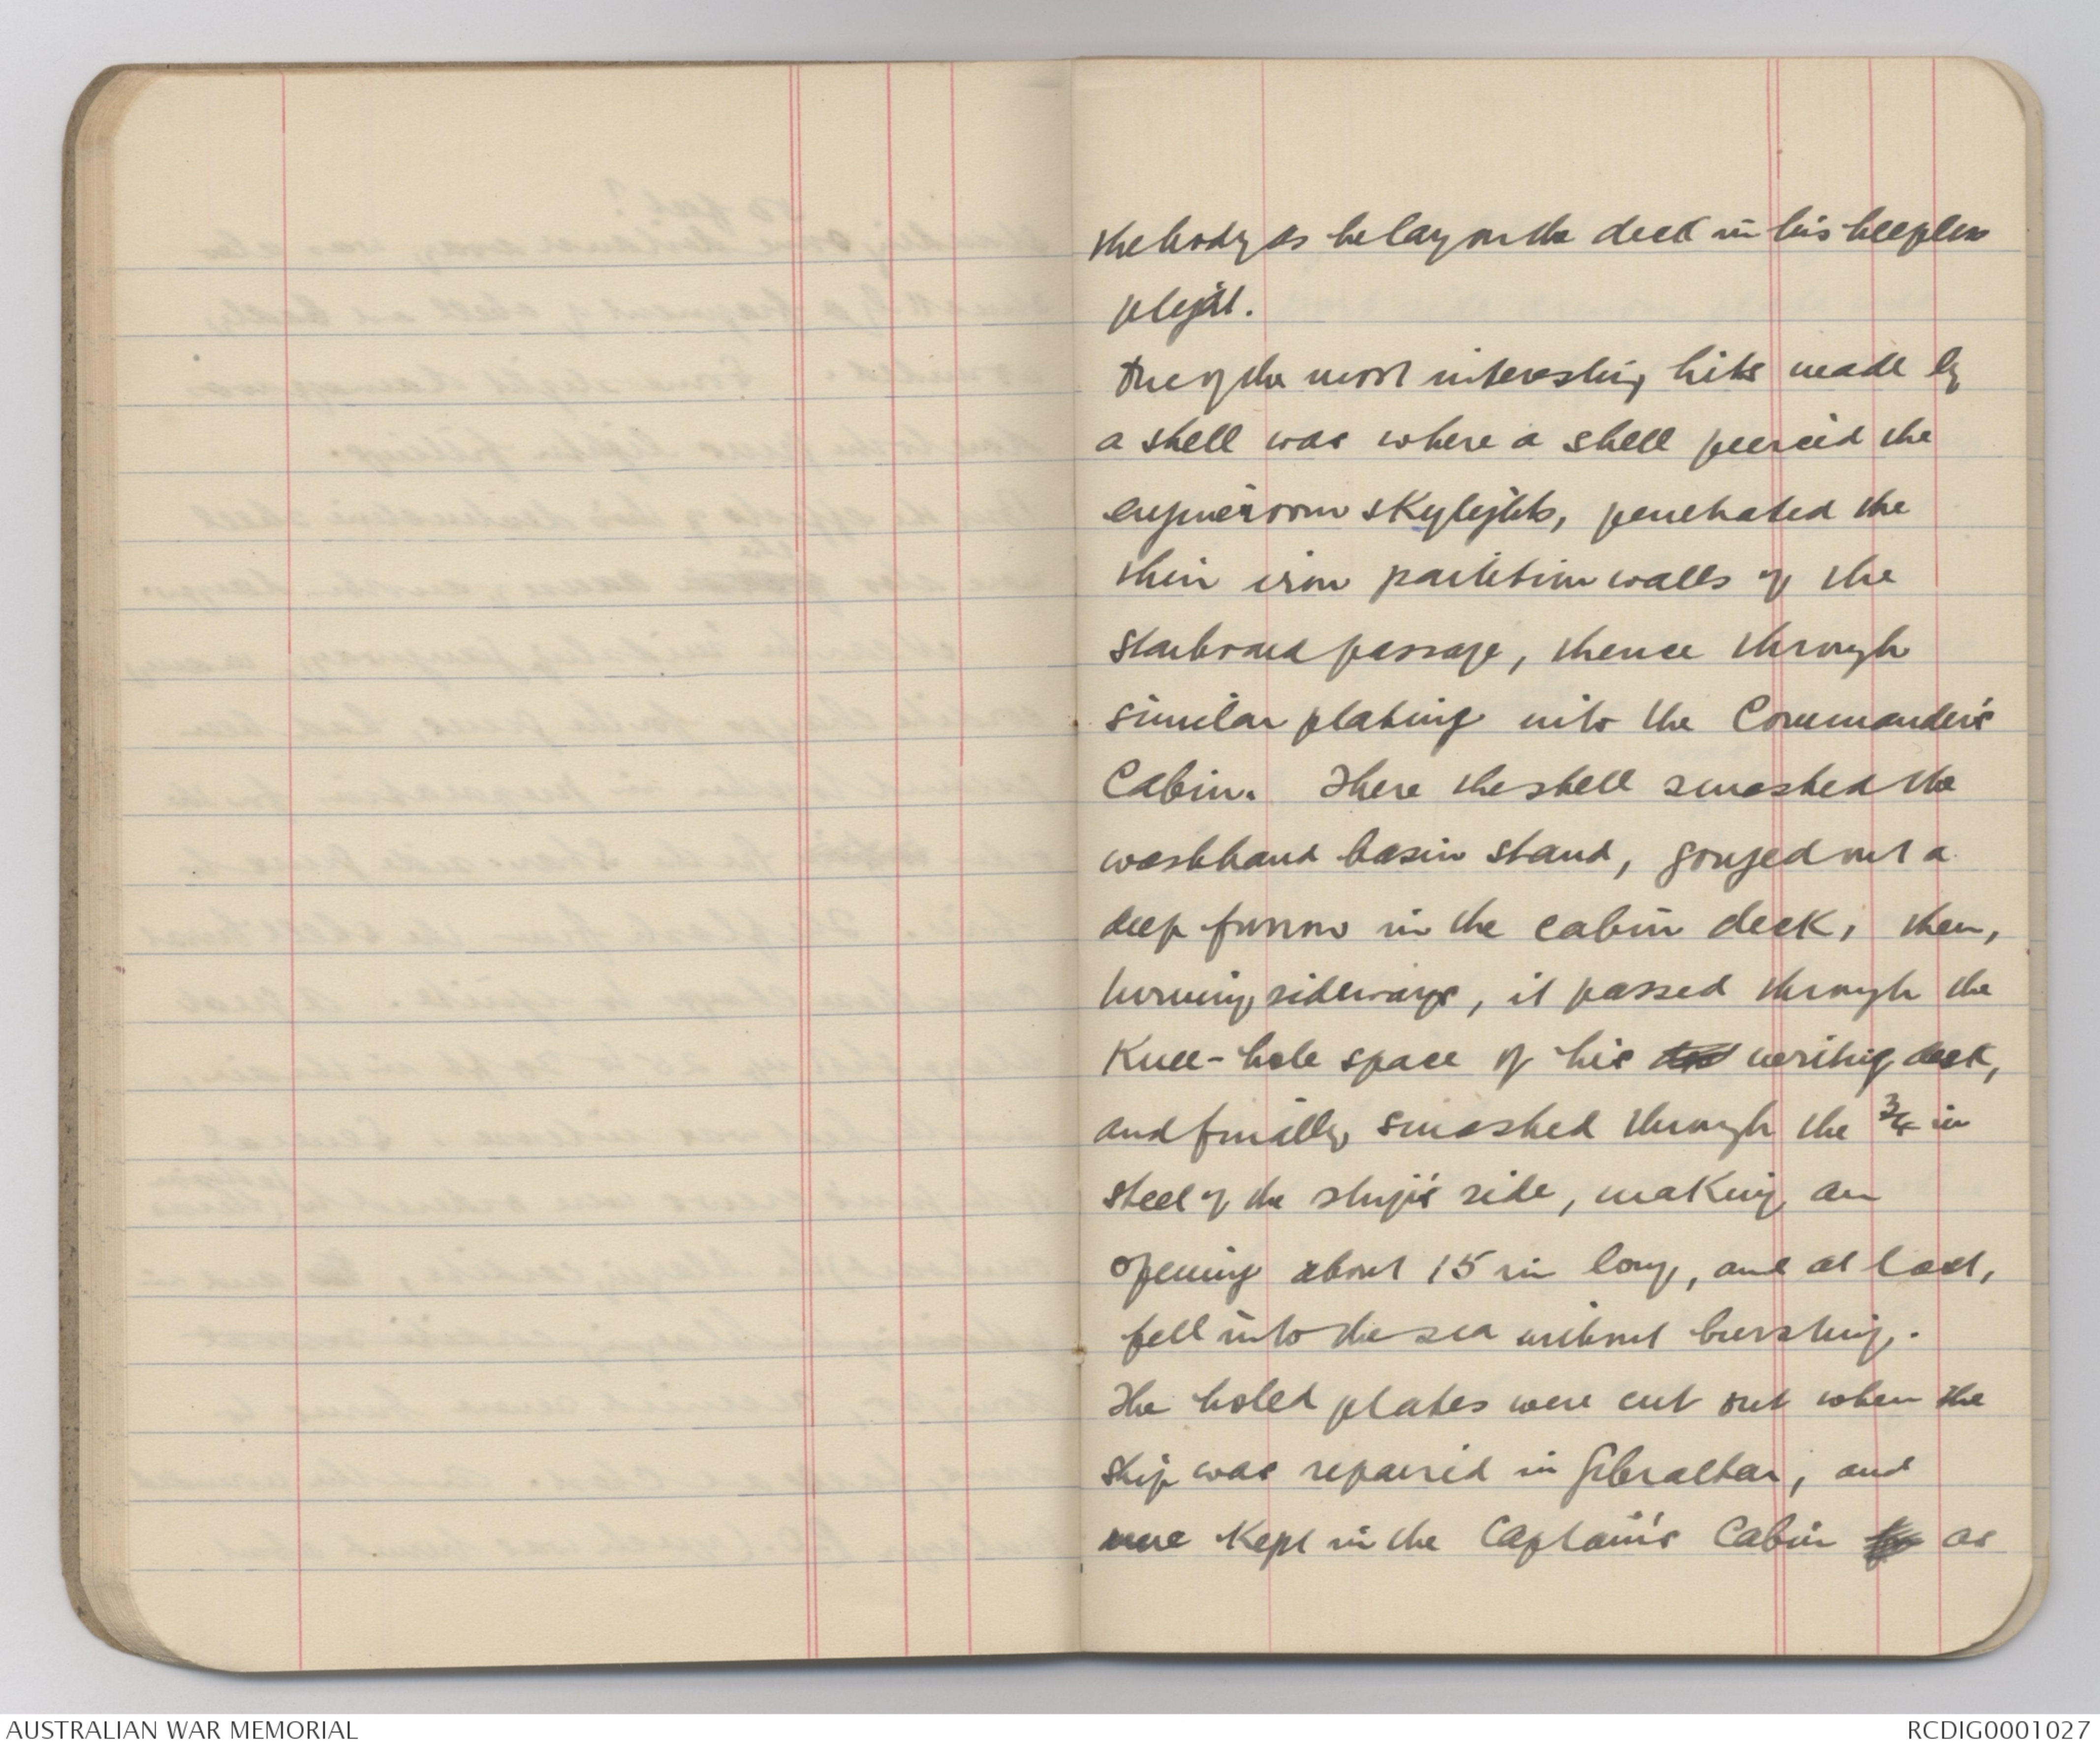 the body as he lay on the deck in his helpless
plight.
One of the most interesting hits made by
a shell was where a shell pierced the
engineroom skylights, penetrated the
thin iron partition walls of the
starboard passage, thence through
similar plating into the Commander's
Cabin. There the shell smashed the
washhand basin stand, gouged out a
deep furrow in the cabin deck, then,
turning sideways, it passed through the
Knee-hole space of his writing desk,
and finally smashed through the 3/4 in
steel of the ship's side, making an
opening about 15 in long, and at last,
fell into the sea without bursting.
The holed plates were cut out when the
ship was repaired in Gibraltar, and
were kept in the Captain's Cabin as
AUSTRALIAN WAR MEMORIAL
RCDIG0001027